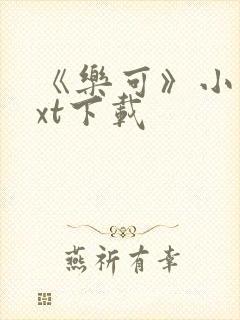 《樂可》小
xt下載
燕祈有幸